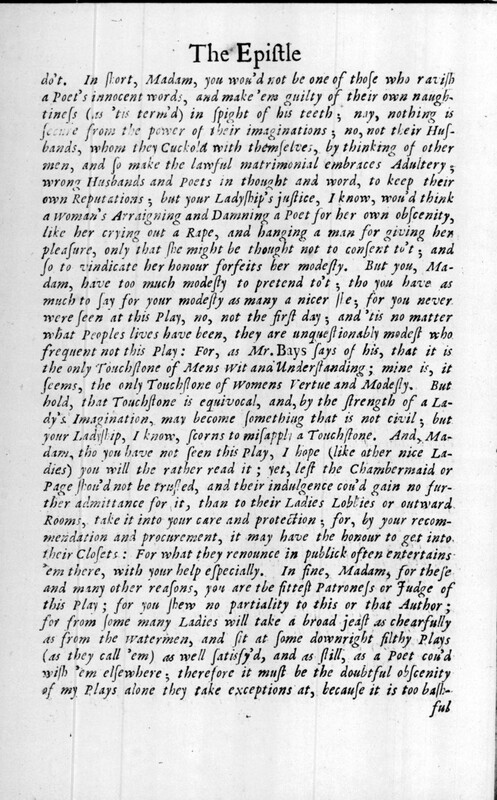 The Epiſtle
do't. In ſhort, Madam, you wou'd not be one of thoſe who raviſh
a Poet's innocent words, and make 'em guilty of their own naugh-
tineſs (as 'tis term'd) in ſpight of his teeth; nay, nothing is
ſecure from the power of their imaginations; no, not their Huſ-
bands, whom they Cuckold with themſelves, by thinking of other
men, and ſo make the lawful matrimonial embraces Adultery;
wrong Husbands and Poets in thought and word, to keep their
own Reputations; but your Ladyſhip's juſtice, I know, wou'd think
a Woman's Arraigning and Damning a Poet for her own obſcenity,
like her crying out a Rape, and hanging a man for giving her
pleaſure, only that ſhe might be thought not to conſent to't; and
ſo to vindicate her honour forfeits her modeſty. But you, Ma-
dam, have too much modeſty to pretend to't; tho you have as
much to ſay for your modeſty as many a nicer ſhe; for you never
were ſeen at this Play, no, not the firſt day; and 'tis no matter
what Peoples lives have been, they are unqueſtionably modeſt who
frequent not this Play: For, as Mr. Bays ſays of his, that it is
the only Touchſtone of Mens Wit and Underſtanding; mine is, it
ſeems, the only Touchſtone of Womens Vertue and Modeſty. But
hold, that Touchſtone is equivocal, and, by the ſtrength of a La-
dy's Imagination, may become ſomething that is not civil; but
your Ladyſhip, I know, ſcorns to miſapply a Touchſtone. And, Ma-
dam, tho you have not ſeen this Play, I hope (like other nice La-
dies) you will the rather read it; yet, leſt the Chambermaid or
Page ſhou'd not be truſted, and their indulgence cou'd gain no fur-
ther admittance for it, than to their Ladies Lobbies or outward
Rooms, take it into your care and protection; for, by your recom-
mendation and procurement, it may have the honour to get into
their Cloſets: For what they renounce in publick often entertains
'em there, with your help eſpecially. In fine, Madam, for theſe
and many other reaſons, you are the fitteſt Patroneſs or Judge of
this Play; for you ſhew no partiality to this or that Author;
for from ſome many Ladies will take a broad jeaſt as chearfully
as from the Watermen, and ſit at ſome downright filthy Plays
(as they call 'em) as well ſatisfy'd, and as ſtill, as a Poet cou'd
wiſh 'em elſewhere; therefore it muſt be the doubtful obſcenity
of my Plays alone they take exceptions at, becauſe it is too baſh-
ful